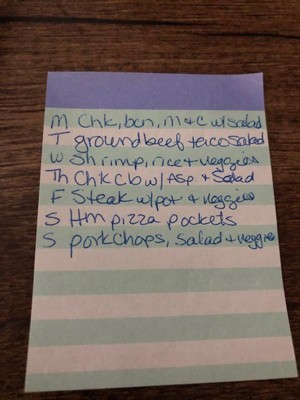 M Chk, bcn, m & c w/salad
T ground beef taco salad
W Shrimp, rice + veggies
Th Chk Cb w/ Asp. + Salad
F Steak w/pot + veggies
S Hm pizza pockets
S porkChops, Salad + veggies